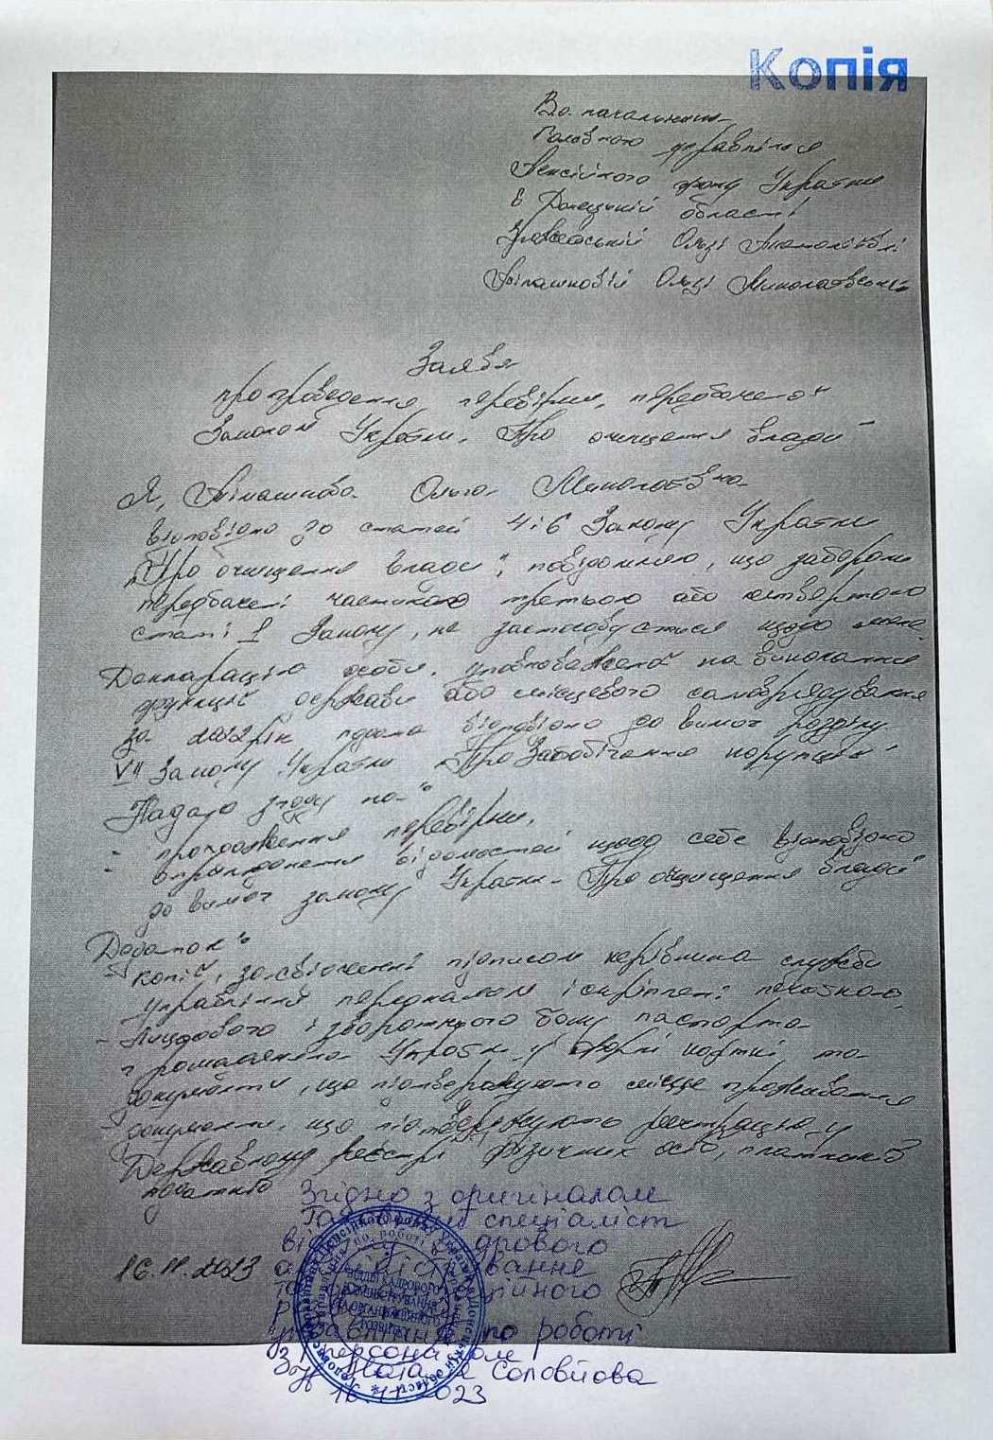 Копія
В.о. начальника
Головного управління
Пенсійного фонду України
в Донецькій області
Ользі Анатоліївні
Ользі Миколаївни
Заява
про проведення перевірки, передбаченої
Законом України „Про очищення влади"
Я, Ольга Миколаївна
відповідно до статей 4 і 6 Закону України
„Про очищення влади", повідомляю, що заборони
передбачені частиною третьою або четвертою
статті 1 Закону, не застосовуються щодо мене.
Декларацію особи, уповноваженої на виконання
функцій держави або місцевого самоврядування
за 2022 рік подано відповідно до вимог розділу
VII Закону України „Про запобігання корупції"
Надаю згоду на:
- проходження перевірки,
- оприлюднення відомостей щодо себе відповідно
до вимог закону України „Про очищення влади"
Додаток:
- копії, засвідчені підписом керівника служби
управління персоналом і скріплені печаткою
- лицьового і зворотного боку паспорта
громадянина України у формі картки, та
документи, що підтверджують місце проживання
- документи, що підтверджують реєстрацію у
Державному реєстрі фізичних осіб, платників
податків
Згідно з оригіналом
Головний спеціаліст
відділу кадрового
адміністрування
та організаційного
розвитку
управління по роботі
з персоналом
Наталія Соловйова
16.11.2023
16.11.2023
ВІДДІЛ КАДРОВОГО
АДМІНІСТРУВАННЯ
ТА ОРГАНІЗАЦІЙНОГО
РОЗВИТКУ